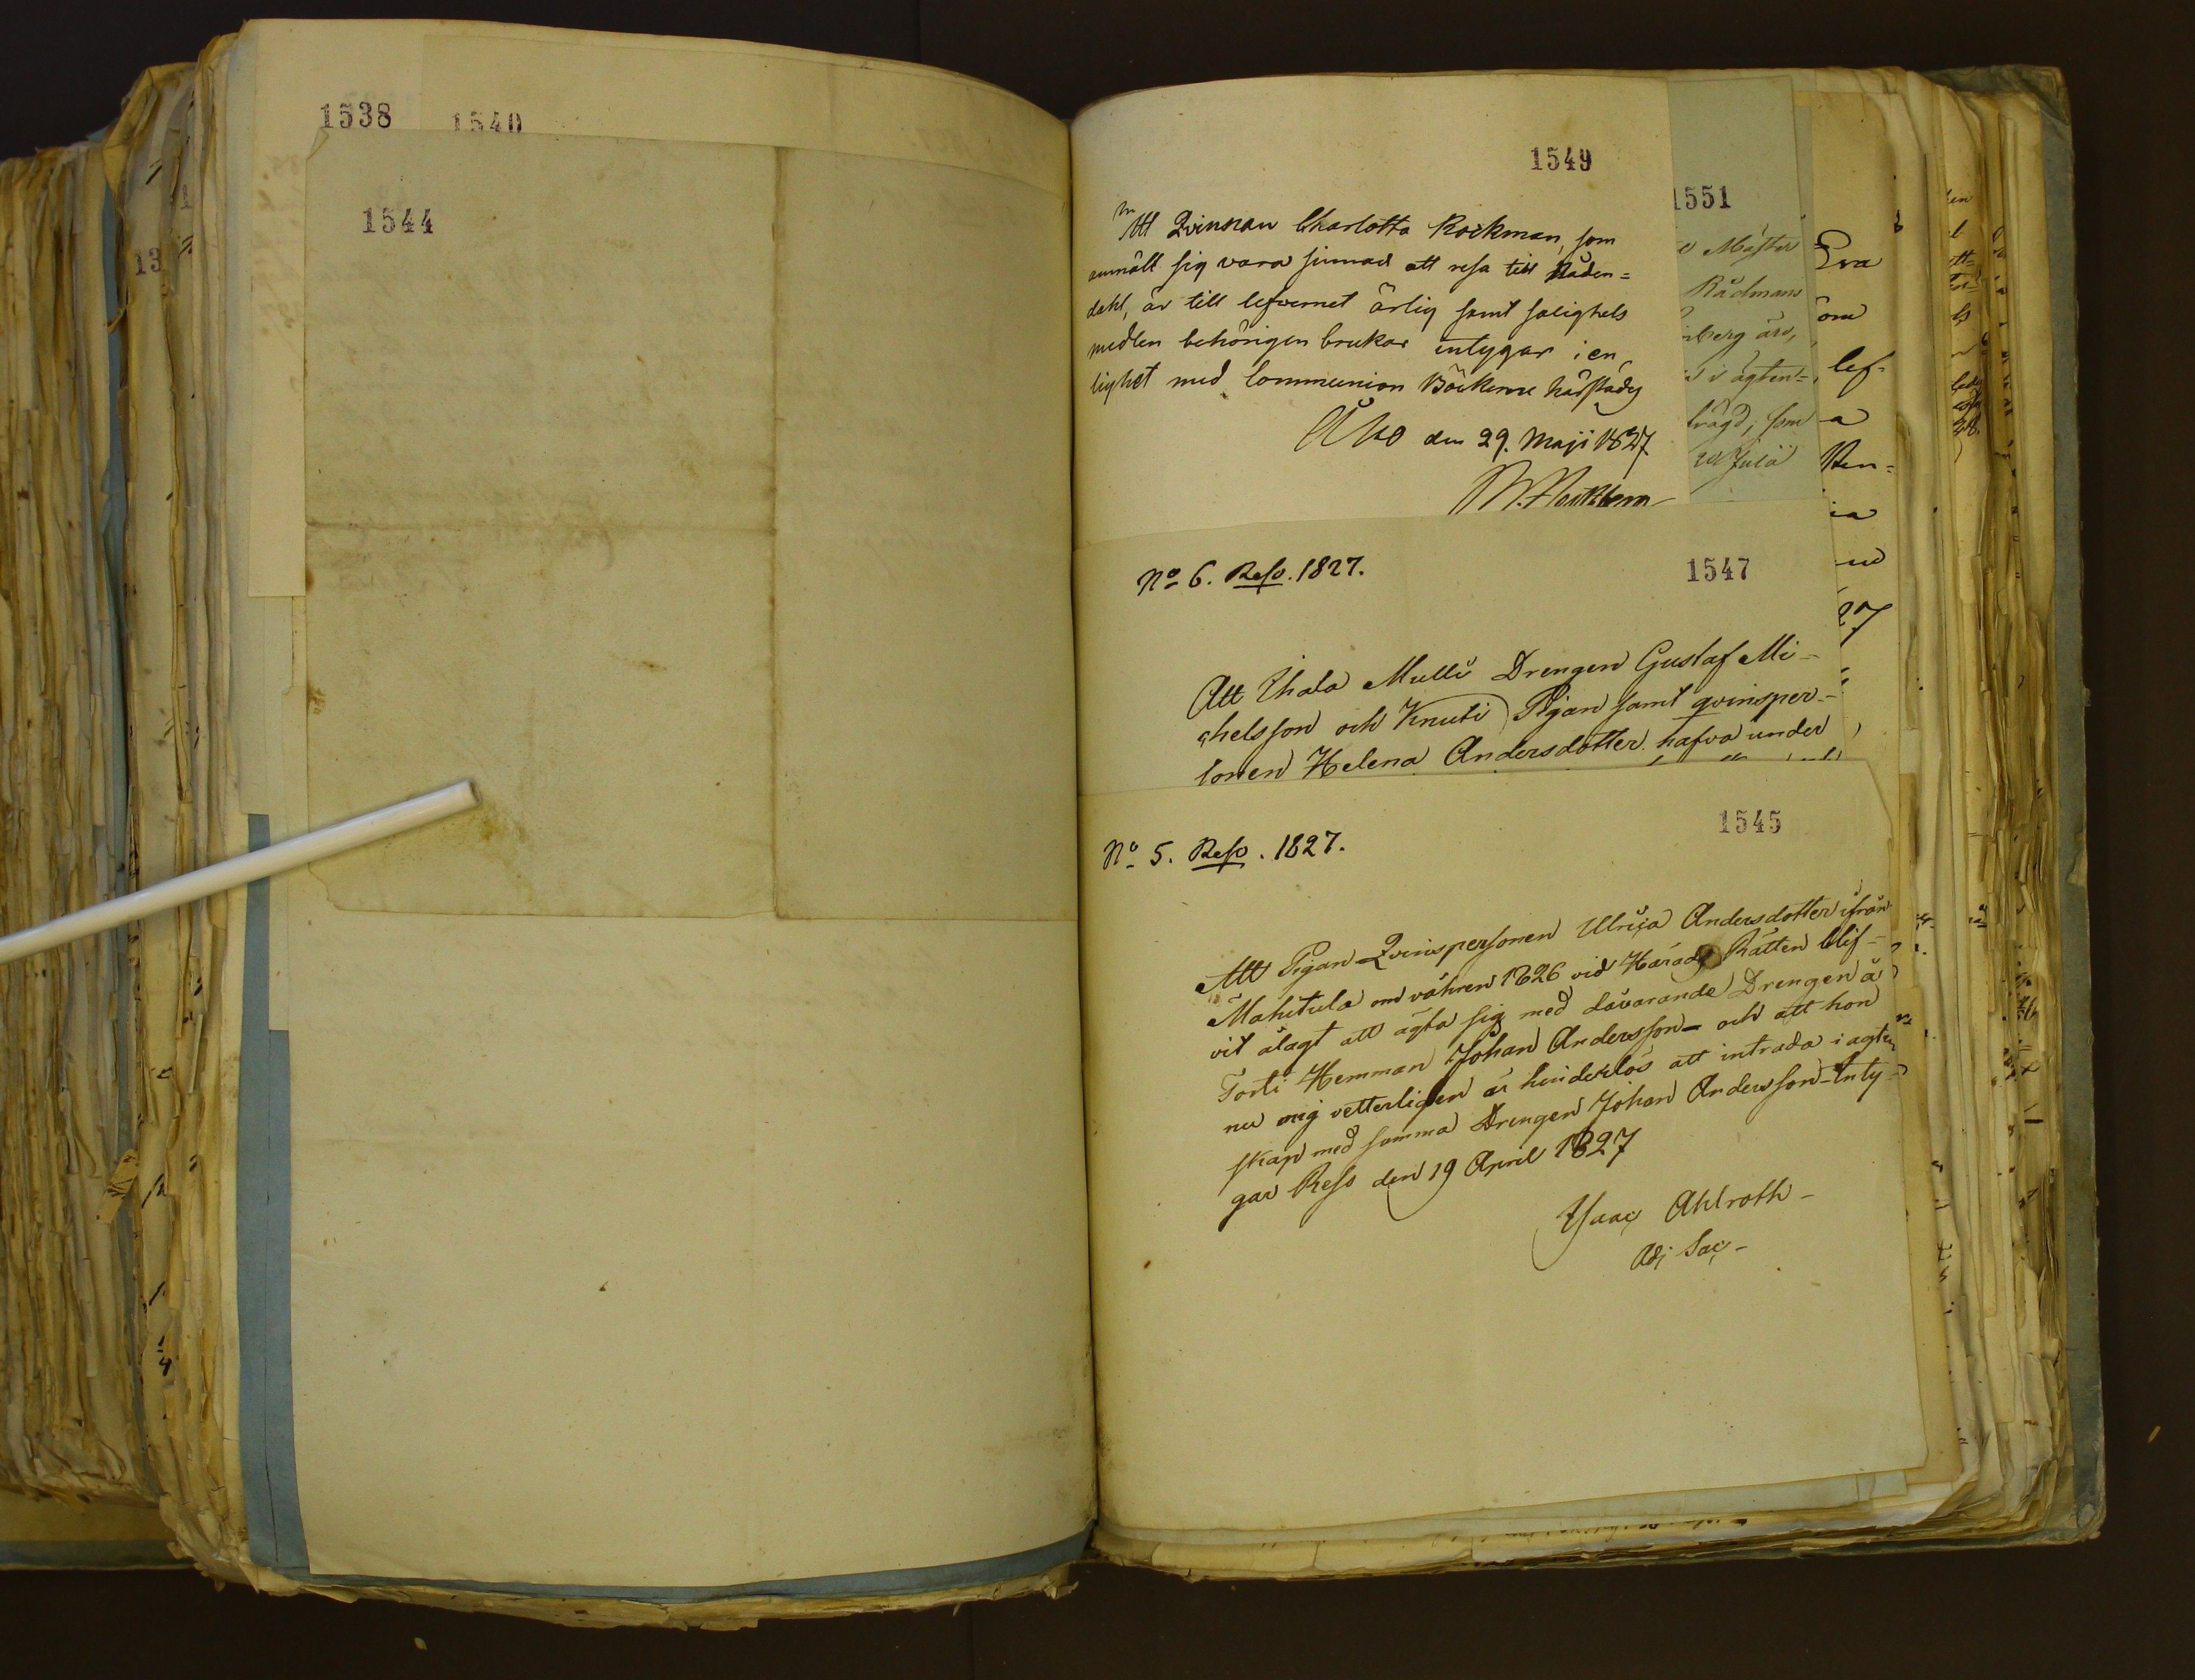 1538
1540
1544
13
1549
Att Qvinnan Charlotta Rockman, som
anmält sig vara sinnad att resa till Nåden=
dahl, är till lefvernet ärlig samt salighets
medlen behörigen brukar intygar i en
lighet med Communion Böckerne härstädes
Åbo den 29. Maji 1827.
1551
Mäster
Rådmans
nberg äro,
i ägten=
trägd, som
Julii
Eva
om
lef=
a
27
No 6. Reso. 1827.
1547
Att Uhala Mulli Drengen Gustaf Mi-
chelsson och Knuti Pigan samt qvinsper-
sonen Helena Andersdotter hafva under
No 5. Reso. 1827.
1545
Att Pigan Qvinspersonen Ulrica Andersdotter ifrån
Mahitula om våhren 1826 vid Härads Rätten blif-
vit ålagt att ägta sig med dåvarande Drengen å
Torti Hemman Johan Andersson - och att hon
nu mig vetterligen är hinderlös att inträda i agten
skap med samma Drengen Johan Andersson - Inty-
gar Reso den 19 April 1827
Isaac Ahlroth -
Adj Sac -